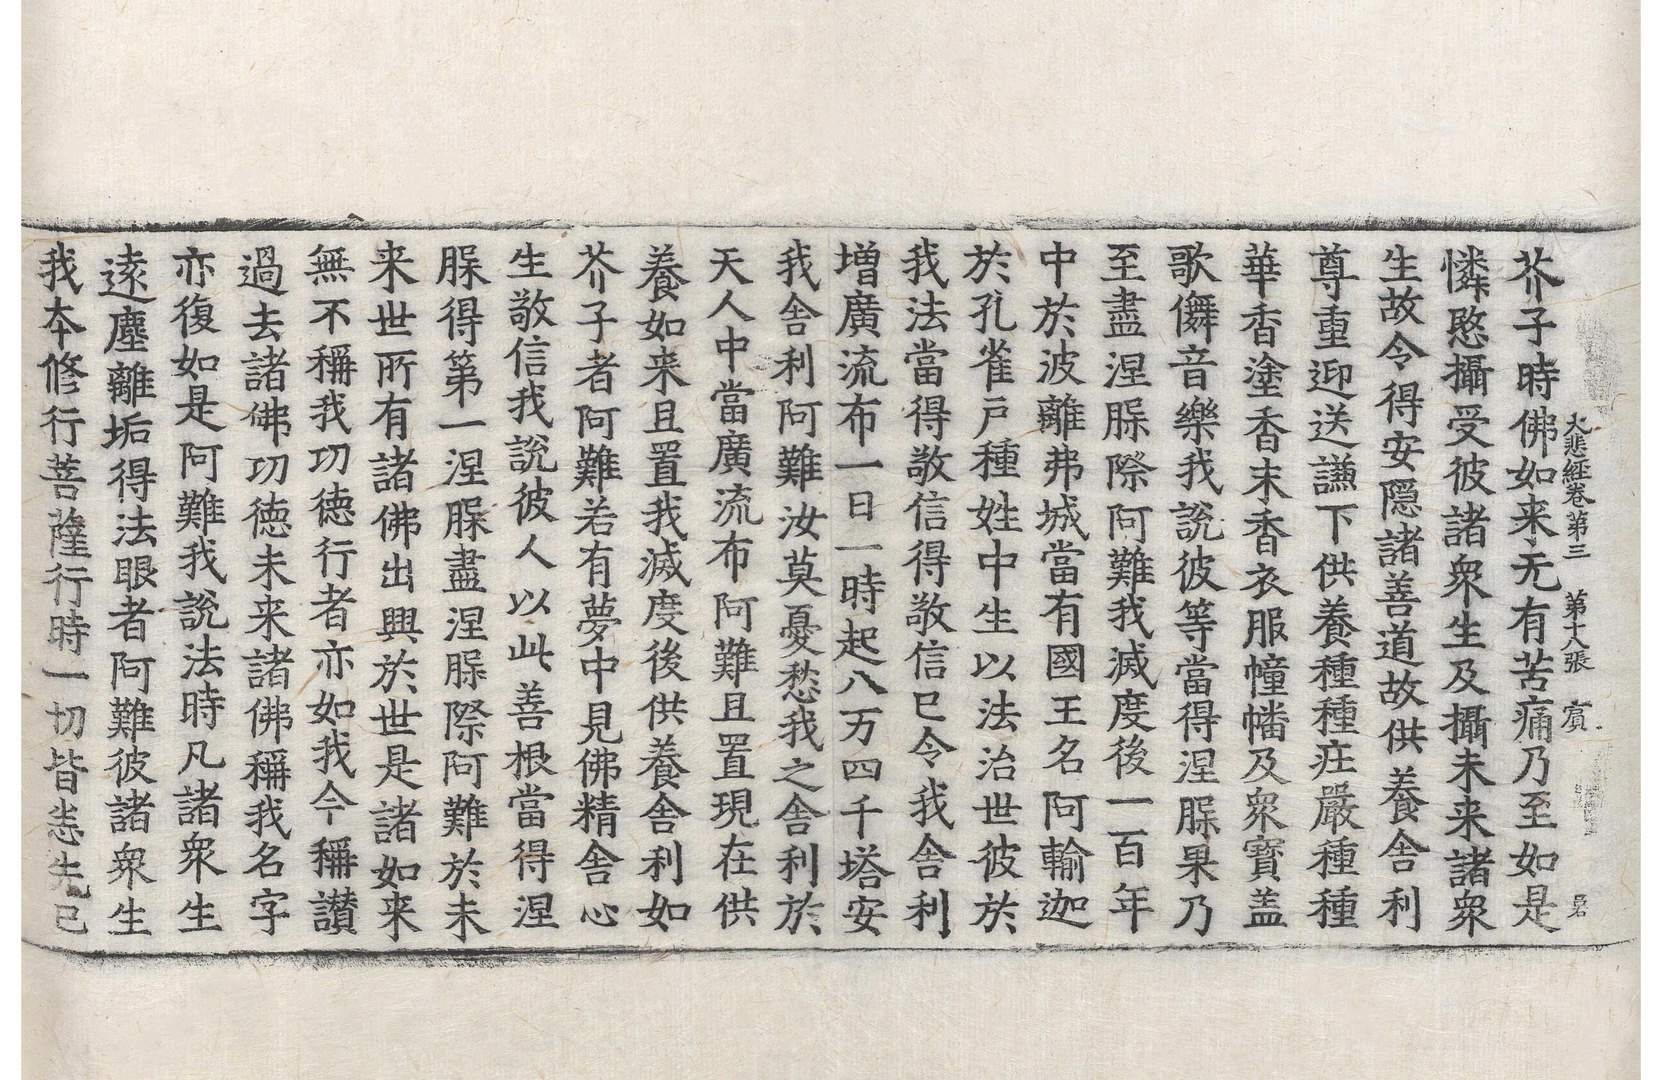 大悲經卷第三　第十八張　賓
芥子時佛如来无有苦痛乃至如是
憐愍攝受彼諸衆生及攝未来諸衆
生故令得安隱諸善道故供養舍利
尊重迎送謙下供養種種庄嚴種種
華香塗香末香衣服幢幡及衆寶盖
歌儛音樂我說彼等當得涅脲果乃
至盡涅脲際阿難我滅度後一百年
中於波離弗城當有國王名阿輸迦
於孔雀戶種姓中生以法治世彼於
我法當得敬信得敬信已令我舎利
增廣流布一日一時起八万四千塔安
我舎利阿難汝莫憂愁我之舎利於
天人中當廣流布阿難且置現在供
養如来且置我滅度後供養舎利如
芥子者阿難若有夢中見佛精舎心
生敬信我說彼人以此善根當得涅
脲得第一涅脲盡涅脲際阿難於未
来世所有諸佛出興於世是諸如来
無不稱我功德行者亦如我今稱讃
過去諸佛功德未来諸佛稱我名字
亦復如是阿難我說法時凡諸衆生
遠塵離垢得法眼者阿難彼諸衆生
我本修行菩薩行時一切皆悉先已